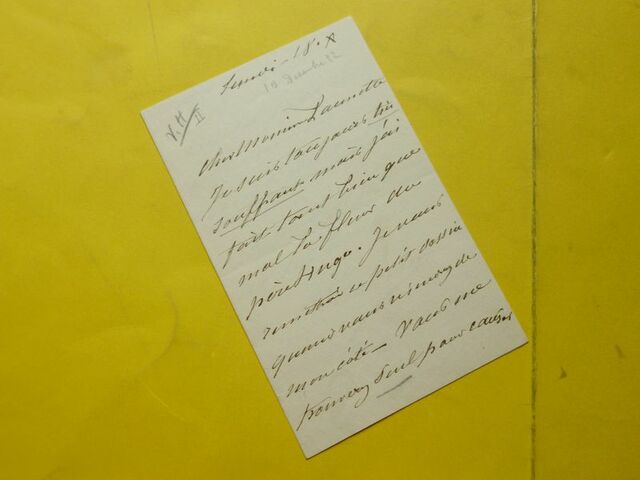 V. H
II
18. X
Cher Monsieur Launette
Je suis toujours très
souffrant mais j'ai
fait tant bien que
mal la fleur du
père Hugo. Je vous
remettrai ce petit dessin
quand vous viendrez de
mon côté - Vous me
trouverez seul pour causer